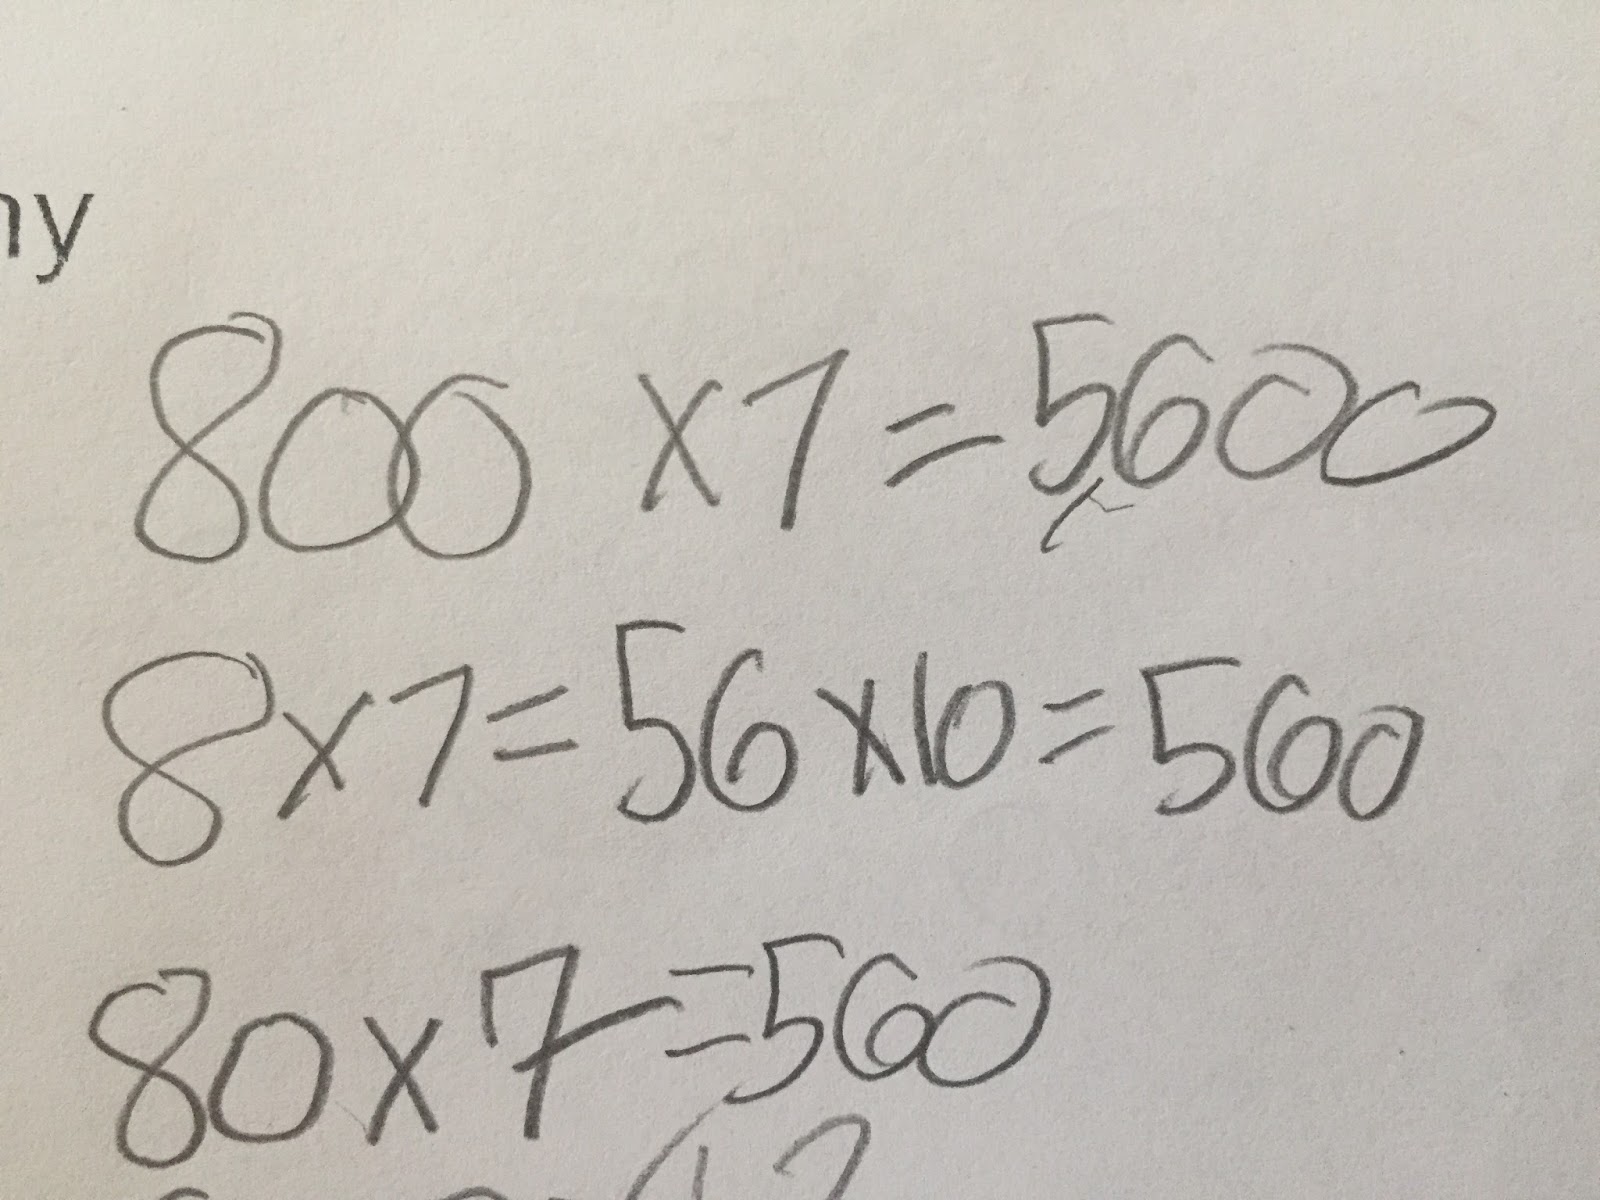 ny
800 x 7 = 5600
8 x 7 = 56 x 10 = 560
80 x 7 = 560